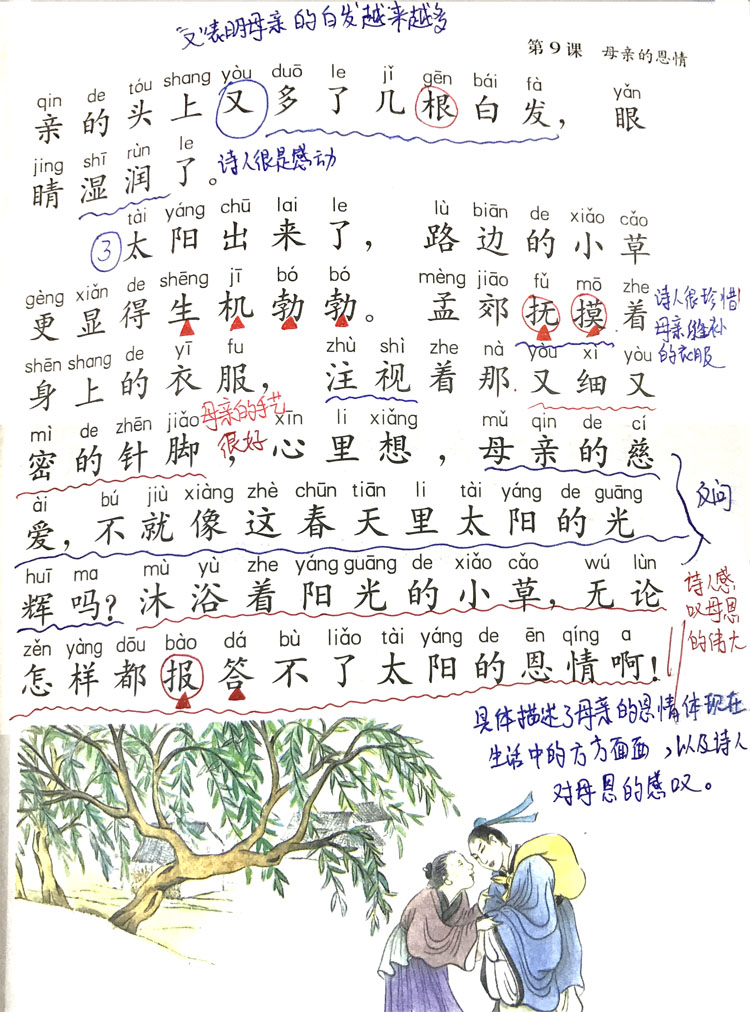 “又”表明母亲的白发越来越多
第9课 母亲的恩情
qin de tóu shang yòu duō le jǐ gēn bái fà yǎn
亲的头上又多了几根白发，眼
jing shī rùn le
睛湿润了。诗人很是感动
tài yáng chū lai le lù biān de xiǎo cǎo
③太阳出来了，路边的小草
gèng xiǎn de shēng jī bó bó mèng jiāo fǔ mō zhe
更显得生机勃勃。孟郊抚摸着
诗人很珍惜
母亲缝补
的衣服
shēn shang de yī fu zhù shì zhe nà yòu xì yòu
身上的衣服，注视着那又细又
mì de zhēn jiǎo xīn li xiǎng mǔ qin de cí
密的针脚，心里想，母亲的慈
母亲的手艺
很好
ài bú jiù xiàng zhè chūn tiān li tài yáng de guāng
爱，不就像这春天里太阳的光
反问
huī ma mù yù zhe yáng guāng de xiǎo cǎo wú lùn
辉吗？沐浴着阳光的小草，无论
诗人感
叹母恩
的伟大
zěn yàng dōu bào dá bù liǎo tài yáng de ēn qíng a
怎样都报答不了太阳的恩情啊！
具体描述了母亲的恩情体现在
生活中的方方面面，以及诗人
对母恩的感叹。